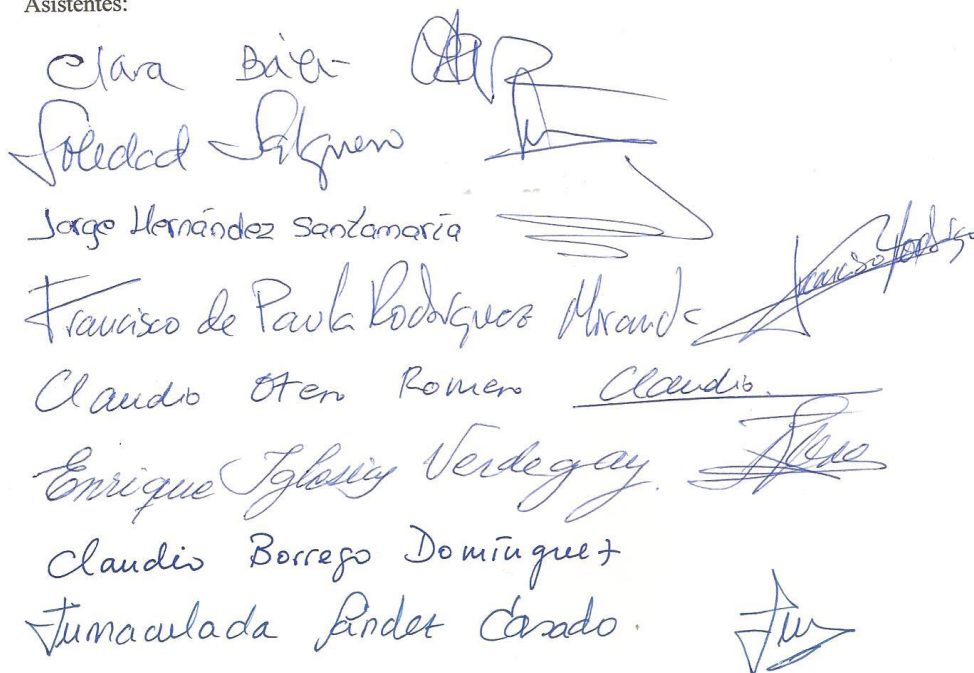 Asistentes:
Clara Báez
Soledad Salguero
Jorge Hernández Santamaría
Francisco de Paula Rodríguez Miranda Francisco Rodrigo
Claudio Otero Romero Claudio
Enrique Iglesias Verdegay
Claudio Borrego Domínguez
Inmaculada Sández Casado.